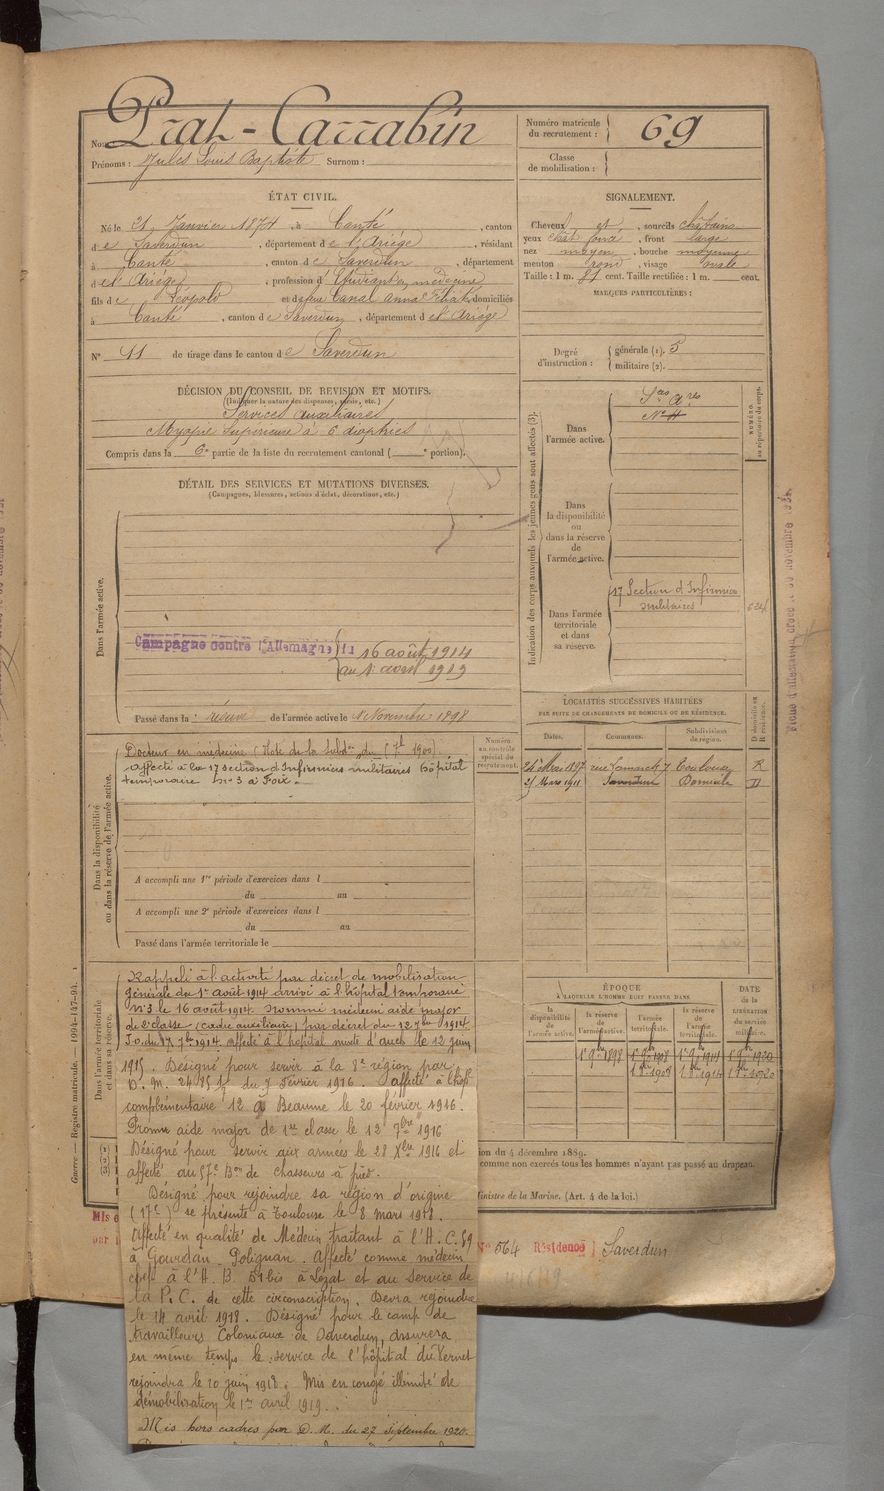 Nom: Prat-Carrabin
Prénoms : Jules Louis Baptiste Surnom :
Numéro matricule du recrutement : 69
Classe de mobilisation :
ÉTAT CIVIL.
Né le 21 Janvier 1874, à Canté, canton
de Saverdun, département de l'Ariége, résidant
à Canté, canton de Saverdun, département
de l'Ariége, profession d'Etudiant en médecine
fils de Léopold et de feue Canal Anna domiciliés
à Canté, canton de Saverdun, département de l'Ariége
N° 11 de tirage dans le canton de Saverdun
SIGNALEMENT.
Cheveux et, sourcils châtains
yeux chat foncé, front large
nez moyen, bouche moyenne
menton rond, visage ovale
Taille : 1 m. 81 cent. Taille rectifiée : 1 m. cent.
MARQUES PARTICULIÈRES :
Degré d'instruction : générale (1). 3
militaire (2).
DÉCISION DU CONSEIL DE REVISION ET MOTIFS.
(Indiquer la nature des dispenses, sursis, etc.)
Services auxiliaires
Myopie supérieure à 6 dioptries
Compris dans la 6e partie de la liste du recrutement cantonal ( e portion).
DÉTAIL DES SERVICES ET MUTATIONS DIVERSES.
(Campagnes, blessures, actions d'éclat, décorations, etc.)
Dans l'armée active.
Campagne contre l'Allemagne du 16 août 1914
au 1 avril 1919
Passé dans la réserve de l'armée active le 1 Novembre 1898
Indication des corps auxquels les jeunes gens sont affectés (3).
NUMÉRO au répertoire du corps.
Dans l'armée active.
Sces Ares
N° 4
Dans la disponibilité ou dans la réserve de l'armée active.
Dans l'armée territoriale et dans sa réserve.
17 Section d'Infirmiers
militaires
LOCALITÉS SUCCESSIVES HABITÉES
PAR SUITE DE CHANGEMENTS DE DOMICILE OU DE RÉSIDENCE.
Dates. Communes. Subdivisions de région. D domicile ou R résidence.
24 Mai 1897 rue Lamarck 7 Toulouse R
21 Mars 1911 Saverdun Domicile D
Dans la disponibilité ou dans la réserve de l'armée active.
Numéro au contrôle spécial du recrutement.
Docteur en médecine (Note de la Subdon du (7bre 1900).
Affecté à la 17 section d'Infirmiers militaires hôpital
temporaire n° 3 à Foix.
A accompli une 1re période d'exercices dans l
du au
A accompli une 2e période d'exercices dans l
du au
Passé dans l'armée territoriale le
Dans l'armée territoriale et dans sa réserve.
Rappelé à l'activité par décret de mobilisation
générale du 1er août 1914 arrivé à l'hôpital temporaire
N° 3 le 16 août 1914. Nommé médecin aide major
de 2e classe (cadre auxiliaire) par décret du 12 7bre 1914
J.O. du 17 7bre 1914 affecté à l'hôpital mixte d'Auch le 12 juin
1915. Désigné pour servir à la 8e région par
D. M. 2415 du 7 février 1916. affecté à l'hôp
complémentaire 12 Beaune le 20 février 1916.
Promu aide major de 1re classe le 12 7bre 1916
Désigné pour servir aux armées le 28 Xbre 1916 et
affecté au 57e Bon de chasseurs à pied.
Désigné pour rejoindre sa région d'origine
(17e) se présente à Toulouse le 8 mars 1918.
Affecté en qualité de Médecin traitant à l'H.C. 59
à Gourdan Polignan. Affecté comme médecin
chef à l'H. B. 51bis à Lézat et au service de
la P. C. de cette circonscription. Devra rejoindre
le 14 avril 1918. Désigné pour le camp de
travailleurs Coloniaux de Saverdun, assurera
en même temps le service de l'hôpital du Vernet
rejoindra le 10 juin 1918. Mis en congé illimité de
démobilisation le 1er avril 1919.
Mis hors cadres par D. M. du 27 septembre 1920.
ÉPOQUE
À LAQUELLE L'HOMME DOIT PASSER DANS
la disponibilité de l'armée active.
la réserve de l'armée active.
l'armée territoriale.
la réserve de l'armée territoriale.
DATE de la LIBÉRATION du service militaire.
1er 9bre 1898 1er 9bre 1908 1er 9bre 1914 1er 9bre 1920
ion du 4 décembre 1889.
comme non exercés tous les hommes n'ayant pas passé au drapeau.
Ministre de la Marine. (Art. 4 de la loi.)
N° 564 Résidence Saverdun
Guerre — Registre matricule. — 1094-147-94.